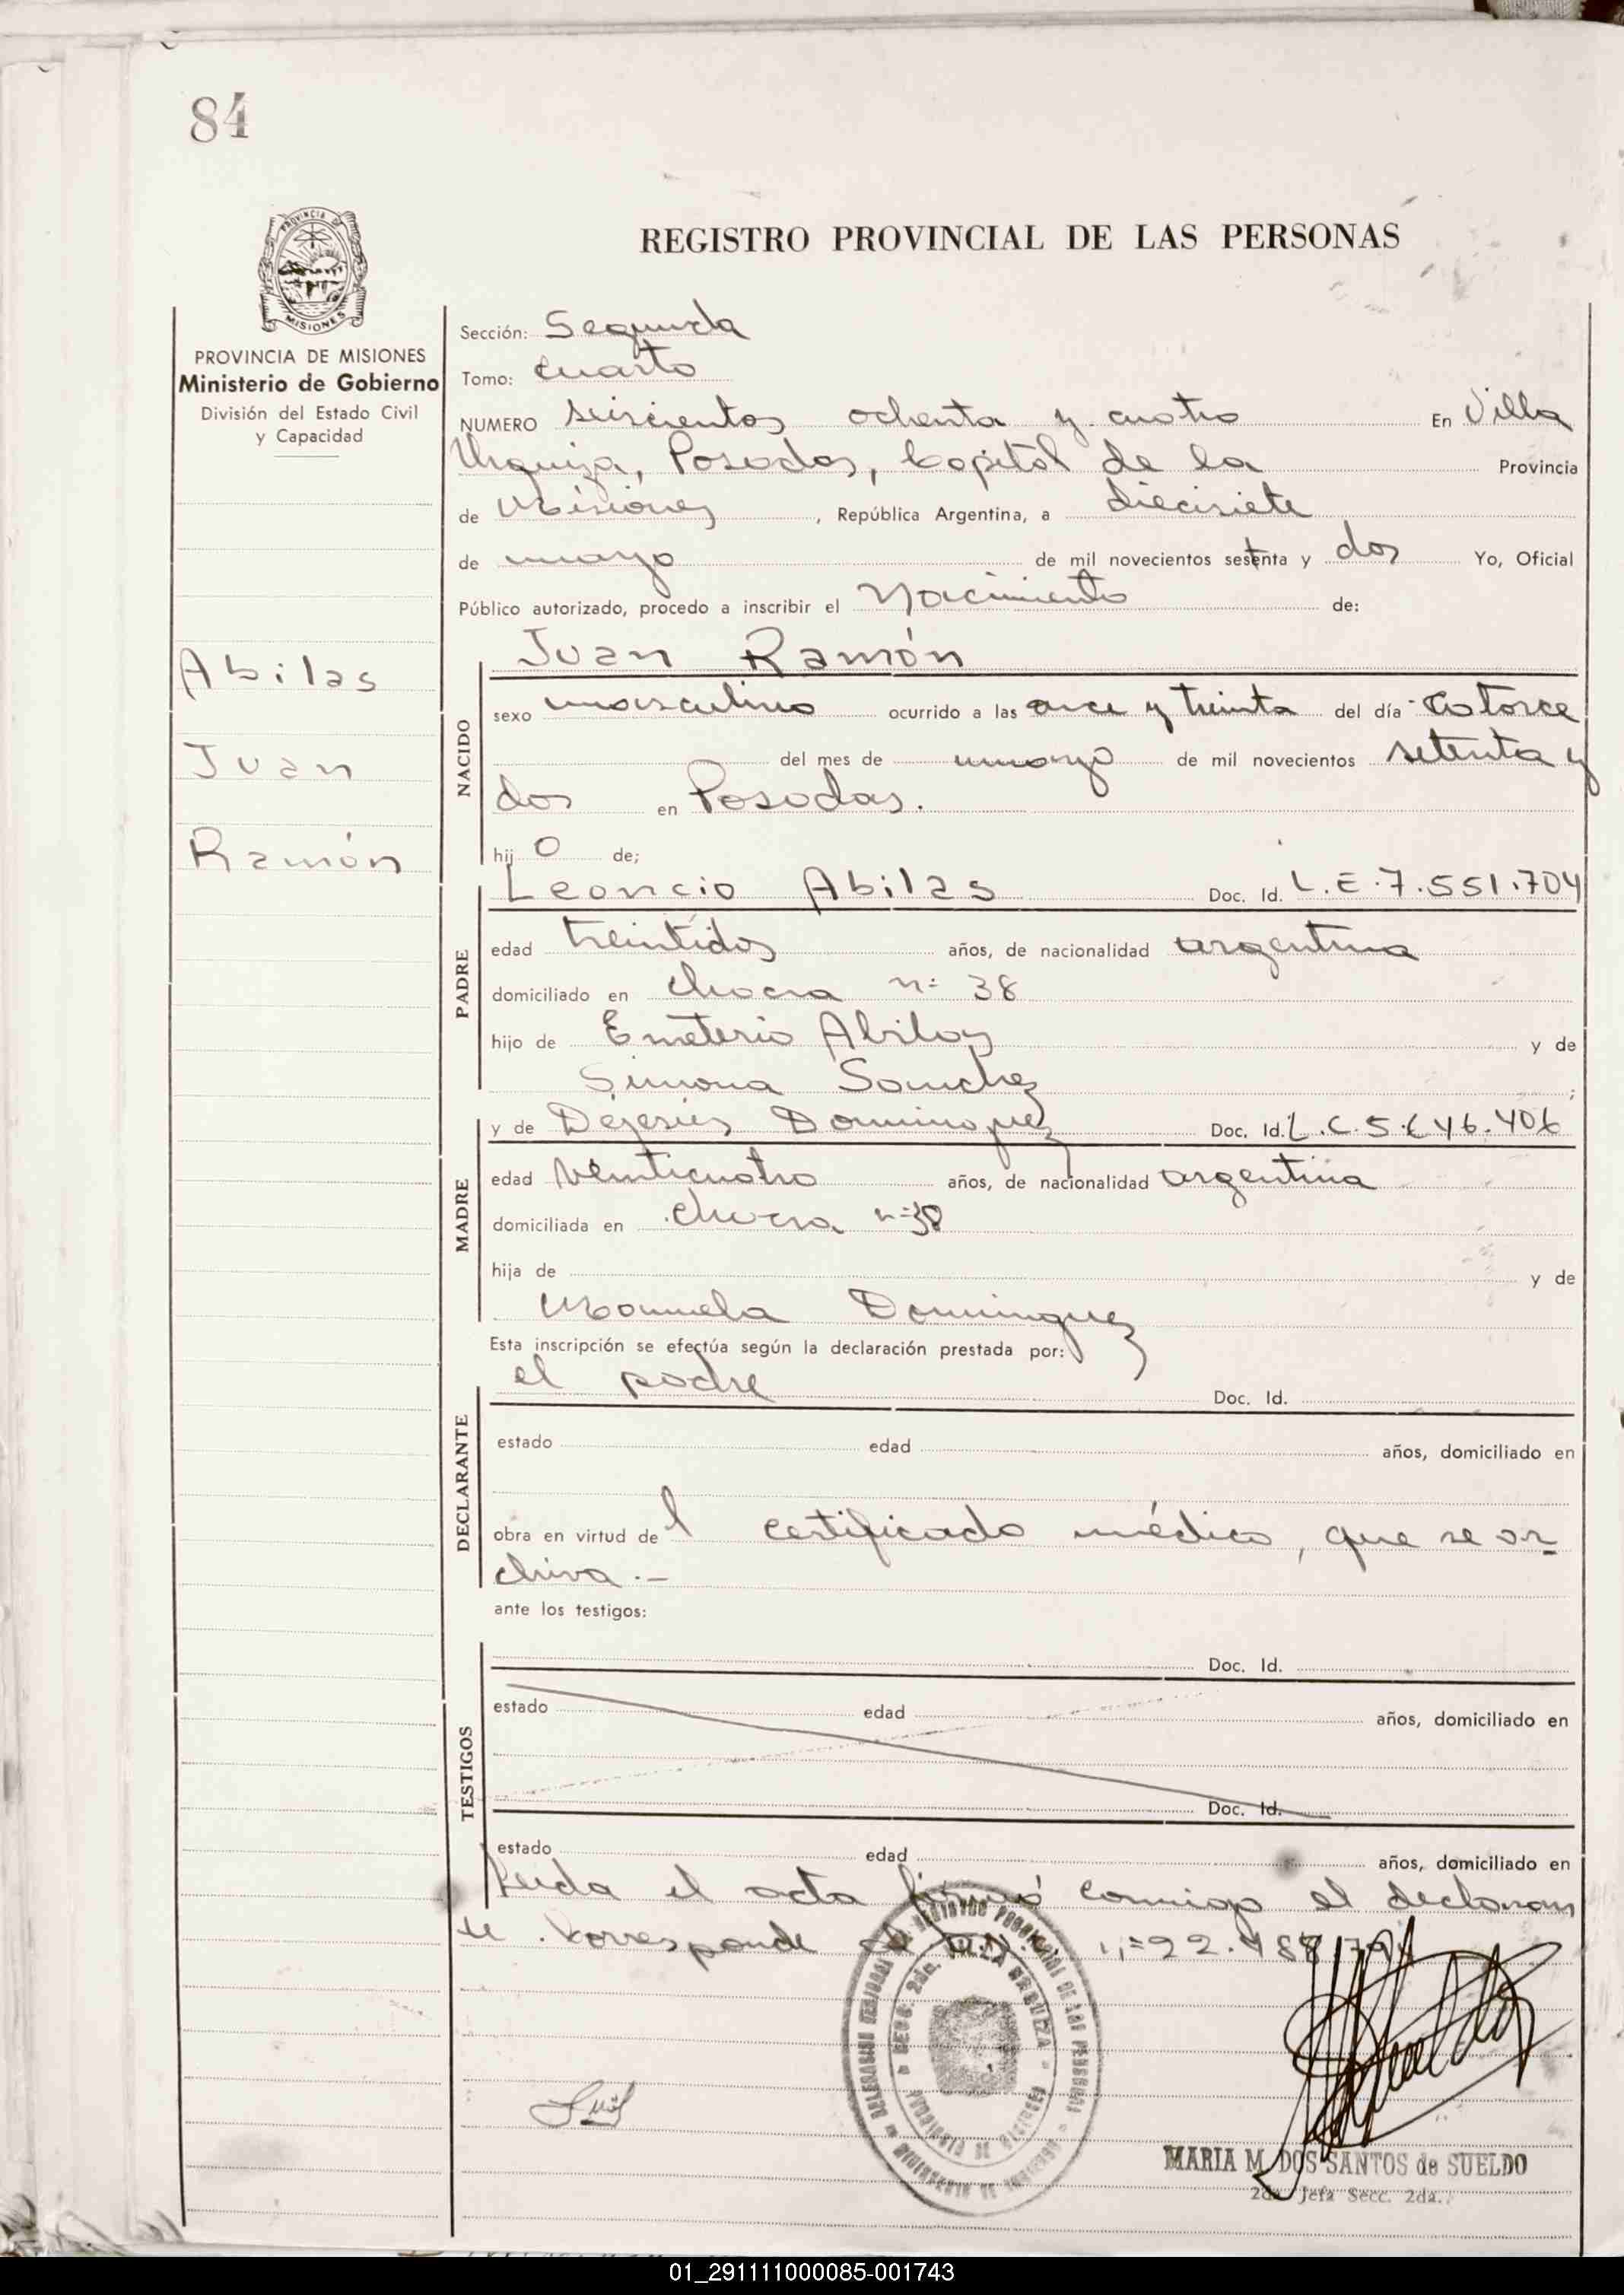 84
PROVINCIA DE MISIONES
Ministerio de Gobierno
División del Estado Civil
y Capacidad
Abilas
Juan
Ramón
REGISTRO PROVINCIAL DE LAS PERSONAS
Sección: Segunda
Tomo: cuarto
NUMERO seiscientos ochenta y cuatro En Villa
Urquiza, Posadas, Capital de la Provincia
de Misiones, República Argentina, a diecisiete
de mayo de mil novecientos setenta y dos Yo, Oficial
Público autorizado, procedo a inscribir el Nacimiento de:
Juan Ramón
NACIDO
sexo masculino ocurrido a las once y treinta del día catorce
del mes de mayo de mil novecientos setenta y
dos en Posadas.
hijo de;
PADRE
Leoncio Abilas Doc. Id. L.E.7.551.704
edad treintidos años, de nacionalidad argentina
domiciliado en chacra n= 38
hijo de Emeterio Abilas y de
Simona Sanchez;
MADRE
y de Dejesús Dominguez Doc. Id. L.C.5.646.406
edad veinticuatro años, de nacionalidad argentina
domiciliada en chacra n=38
hija de y de
Manuela Dominguez
Esta inscripción se efectúa según la declaración prestada por:
DECLARANTE
el padre Doc. Id.
estado edad años, domiciliado en
obra en virtud del certificado médico, que se ar
chiva.-
ante los testigos:
TESTIGOS
Doc. Id.
estado edad años, domiciliado en
Doc. Id.
estado edad años, domiciliado en
Leida el acta firmó conmigo el declaran
te. Corresponde n=22.
MARIA M. DOS SANTOS de SUELDO
2da. Jefa Secc. 2da.
01_291111000085-001743